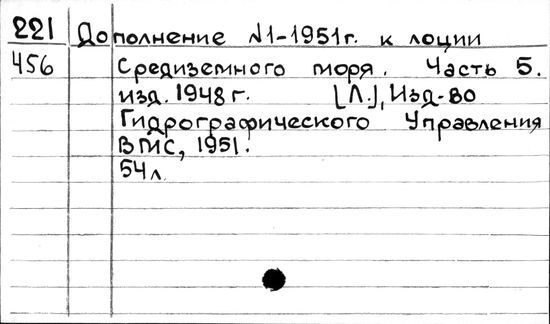 221 Дополнение N1-1951г. к лоции
456 Средиземного моря. Часть 5.
изд. 1948 г. [Л.], Изд-во
Гидрографического Управления
ВМС, 1951.
54 л.